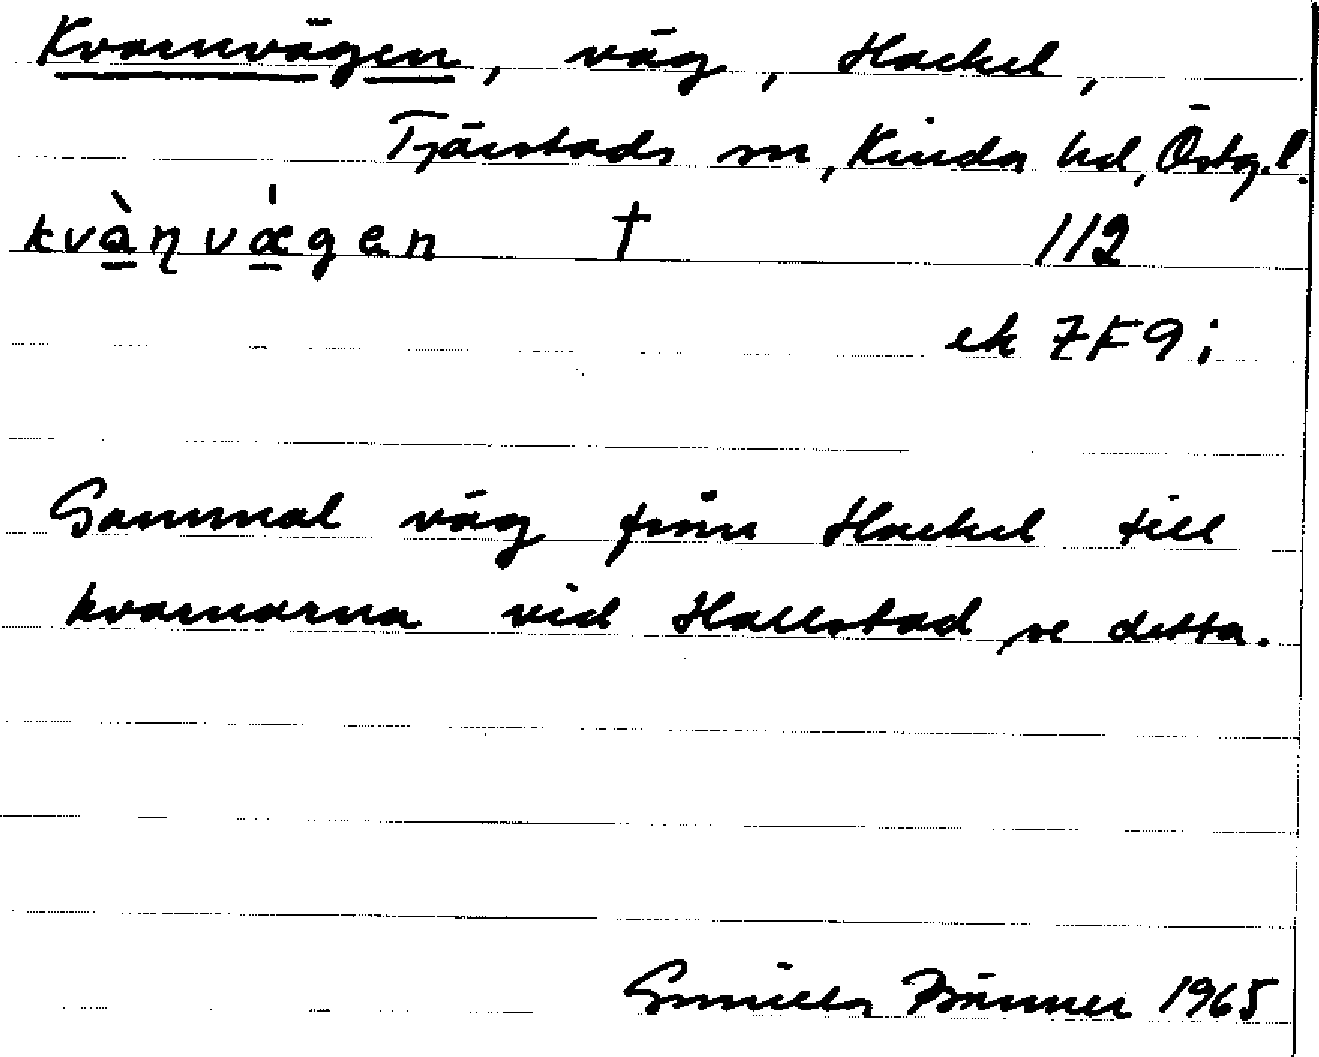 Kvarnvägen, väg, Hackel,
Tjärstads sn, Kinda hd, Östg.l.
kvàṇvǽgen † 112
ek 7F9i
Gammal väg från Hackel till
kvarnarna vid Hallstad, se detta.
Gunilla 1965